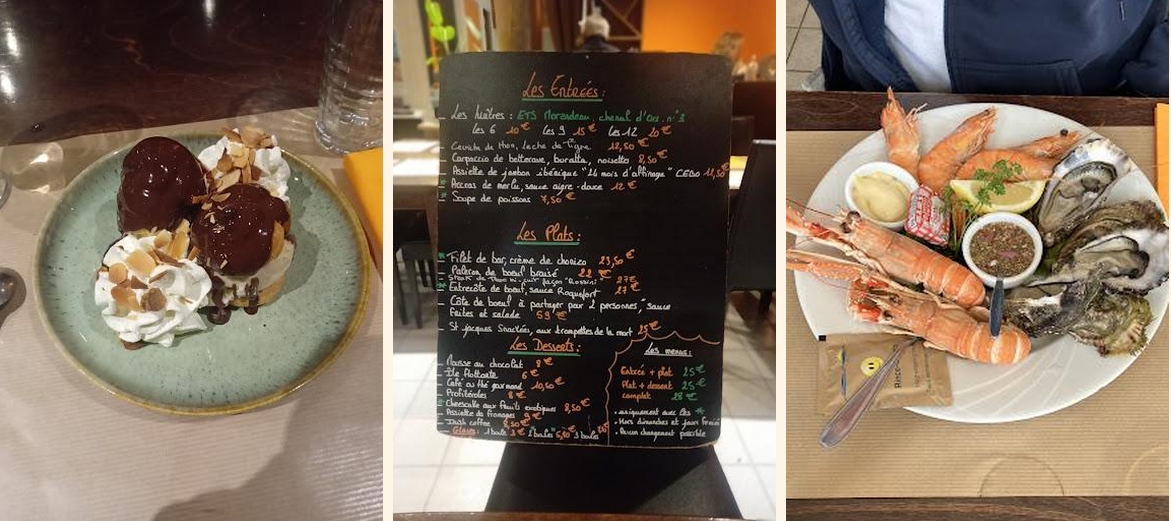 Les Entrées :
Les huîtres : ETS Morandeau, chenal d'Ors. n°3
Les 6 10€ Les 9 15€ Les 12 20€
Ceviche de thon, leche de tigre 12,50€
Carpaccio de betterave, burratta, noisettes 8,50€
Assiette de jambon ibérique "24 mois d'affinage" CEBO
Accras de merlu, sauce aigre-douce 12€
Soupe de poissons 7,50€
Les Plats :
Filet de bar, crème de chorizo 23,50€
Paleron de boeuf braisé 22€
Steak de thon mi-cuit façon "Rossini" 27€
Entrecôte de boeuf, sauce Roquefort 27€
Côte de boeuf à partager pour 2 personnes, sauce
frites et salade 59€
St jacques Snackées, aux trompettes de la mort 25€
Les Desserts :
Mousse au chocolat 8€
Île flottante 6€
Café ou thé gourmand 10,50€
Profitéroles 8€
Cheesecake aux fruits exotiques 8,50€
Assiette de fromages 9€
Irish coffee 8,50€
Glaces : 1 boule 3€ 2 boules 5,80€ 3 boules
Les menus :
Entrée + plat 25€
Plat + dessert 25€
complet 28€
. uniquement avec les *
. Hors dimanches et jours fériés
. Aucun changement possible
Rince